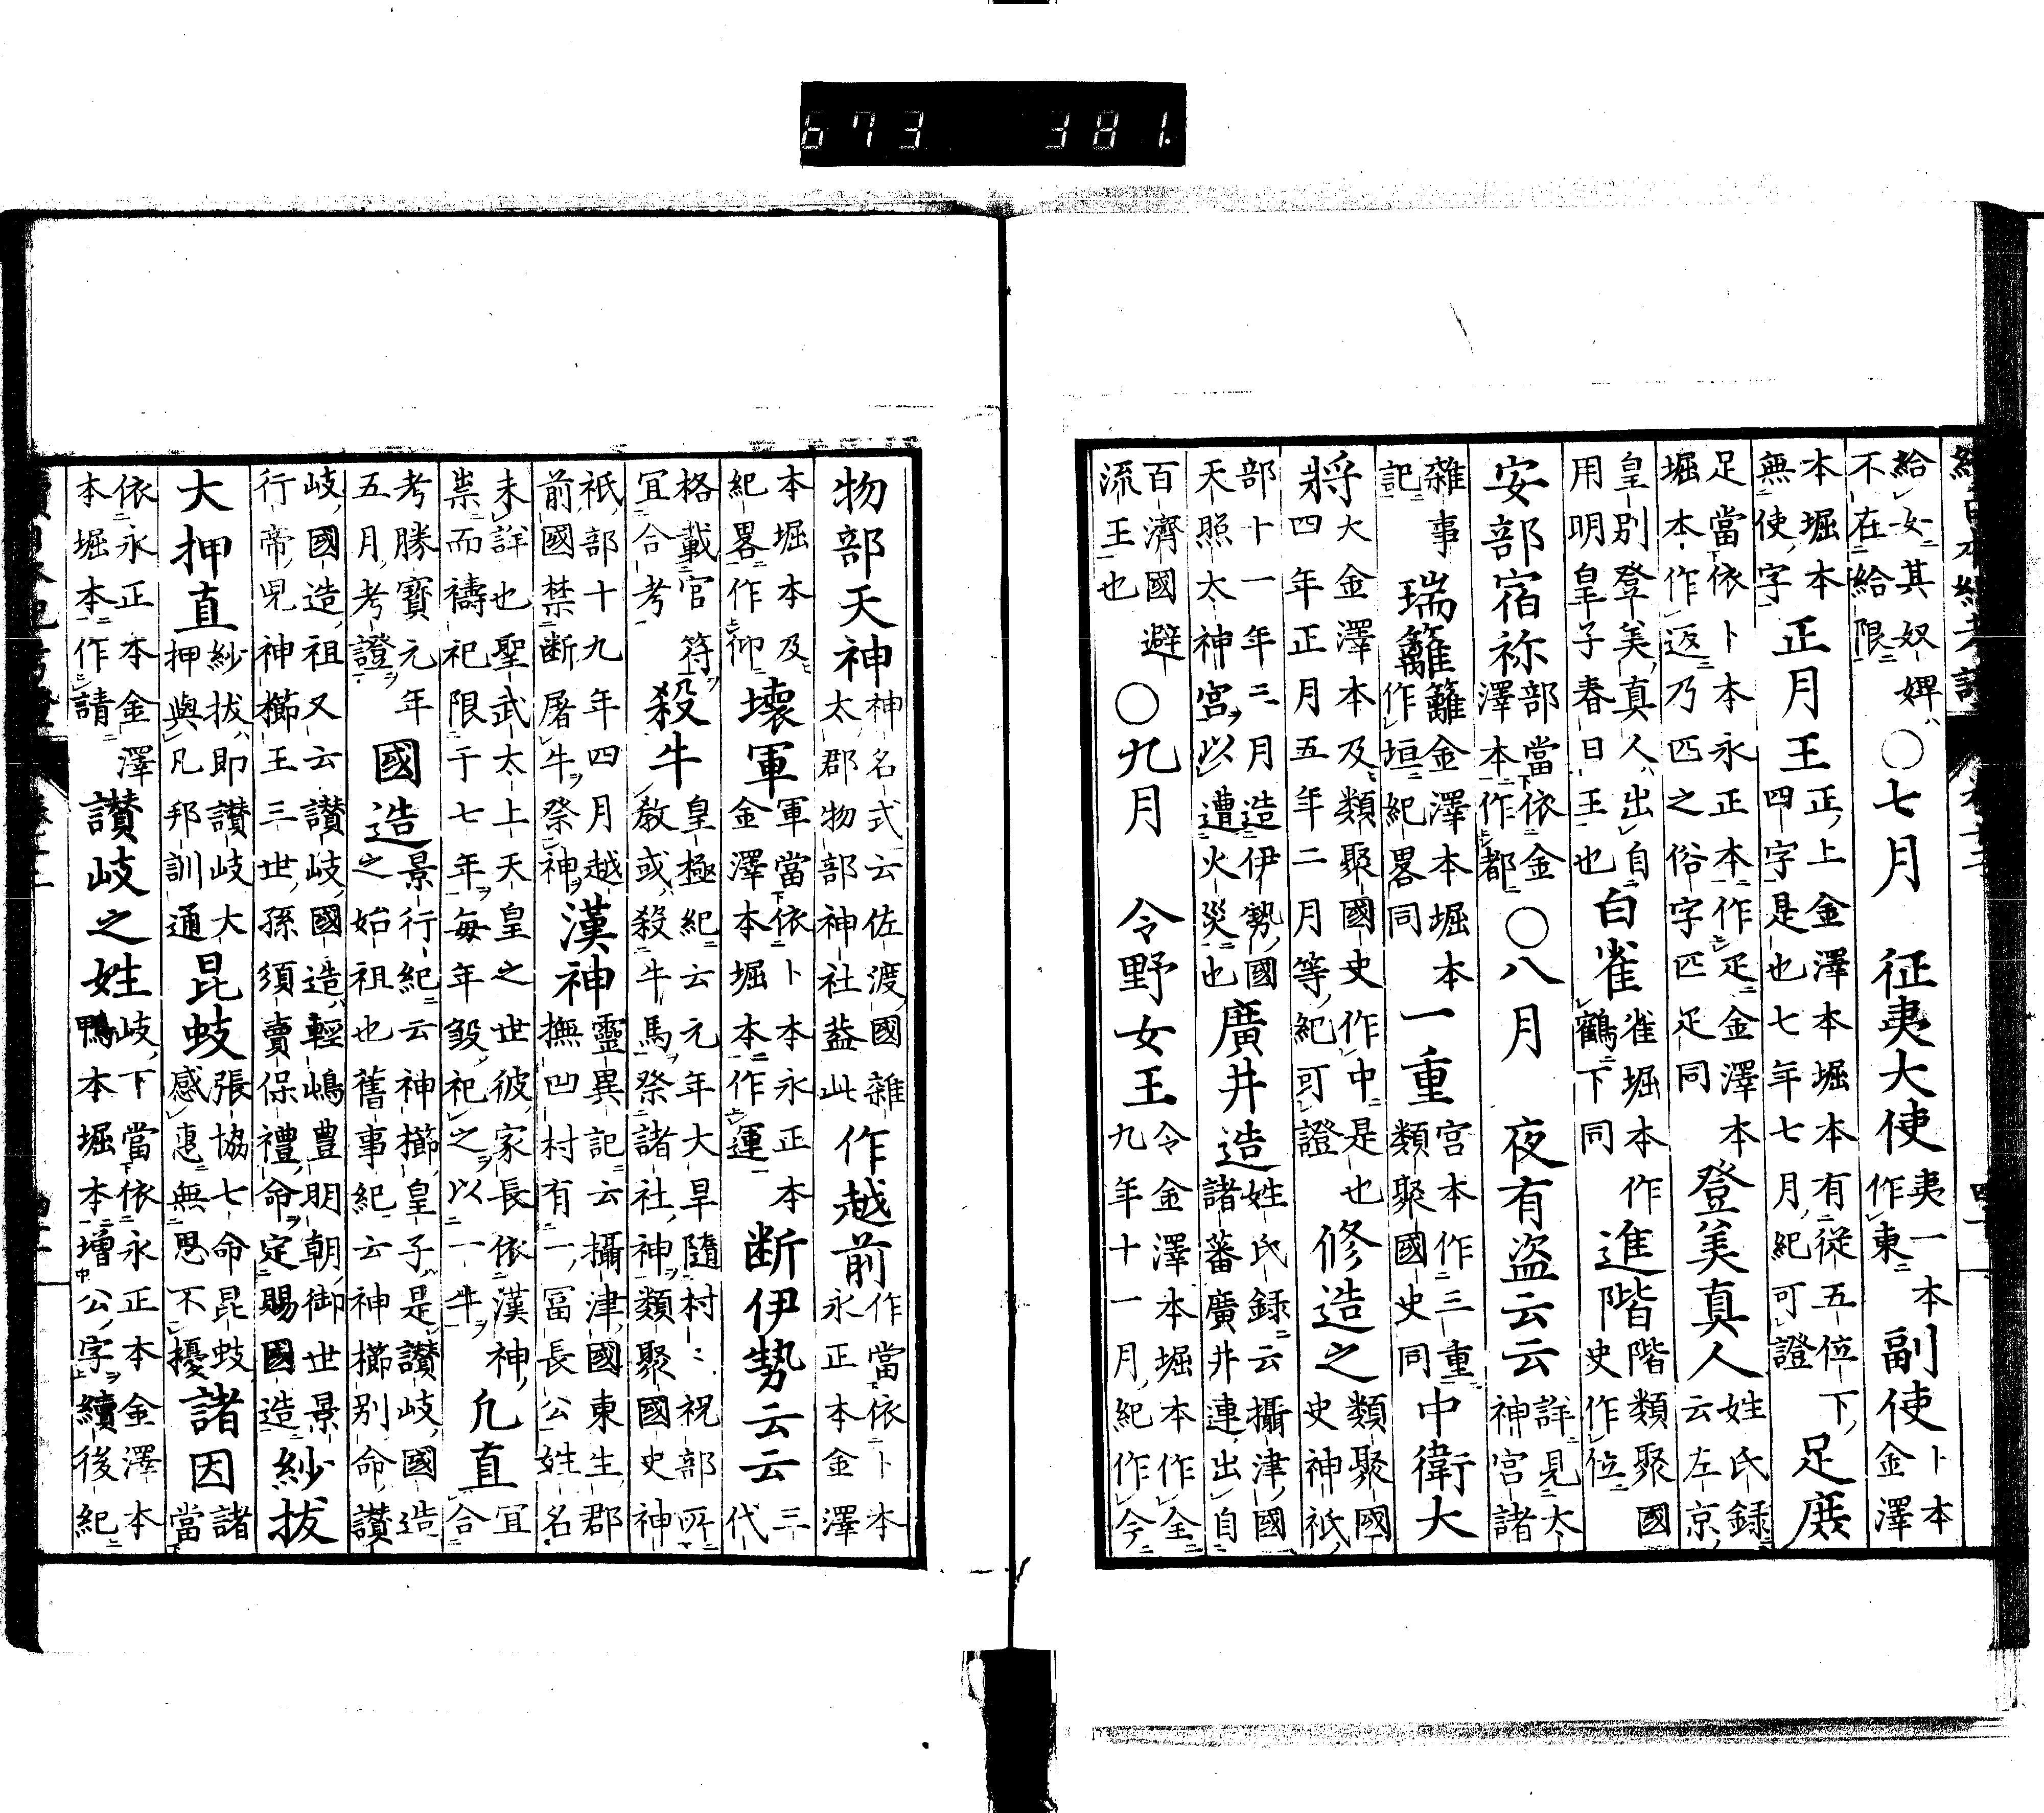 673 381.
給女其奴婢
不在給限
〇七月 征夷大使
夷一本
作東
副使
卜本
金澤
本堀本
無使字
正月王
正上金澤本堀本有從五位下
四字是也七年七月紀可證
足廣
足當依卜本永正本作疋金澤本
堀本作返乃匹之俗字匹疋同
登美真人
姓氏録
云左京
皇別登美真人出自
用明皇子春日王也
白雀
雀堀本作
鶴下同
進階
階類聚國
史作位
安部宿祢
部當依金
澤本作都
〇八月 夜有盗云云
詳見太
神宮諸
雜事
記
瑞籬
籬金澤本堀本
作垣紀畧同
一重
宮本作三重
類聚國史同
中衛大
將
大金澤本及類聚國史作中是也
四年正月五年二月等紀可證
修造之
類聚國
史神祇
部十一年二月造伊勢國
天照太神宮以遭火災也
廣井造
姓氏録云攝津國
諸蕃廣井連出自
百濟國避
流王也
〇九月 令野女王
令金澤本堀本作全
九年十一月紀作今
物部天神
神名式云佐渡國雜
太郡物部神社蓋此
作越前
作當依卜本
永正本金澤
本堀本及
紀畧作仰
壞軍
軍當依卜本永正本
金澤本堀本作運
断伊勢云云
三
代
格載官符
宜合考
殺牛
皇極紀云元年大旱隨村々祝部所
教或殺牛馬祭諸社神類聚國史神
祇部十九年四月越
前國禁断屠牛祭神
漢神
靈異記云攝津國東生郡
撫凹村有一冨長公姓名
未詳也聖武太上天皇之世彼家長依漢神
祟而禱祀限于七年毎年殺祀之以一牛
凡直
宜
合
考勝寶元年
五月考證
國造
景行紀云神櫛皇子是讃岐國造
之始祖也舊事紀云神櫛別命讃
岐國造祖又云讃岐國造輕嶋豊明朝御世景
行帝兒神櫛王三世孫須賣保禮命定賜國造
紗拔
大押直
紗拔即讃岐大
押與凡邦訓通
昆蛟
張協七命昆蛟
感惠無思不擾
諸因
諸
當
依永正本金澤
本堀本作請
讃岐之姓
岐下當依永正本金澤本
鴨本堀本増公字續後紀